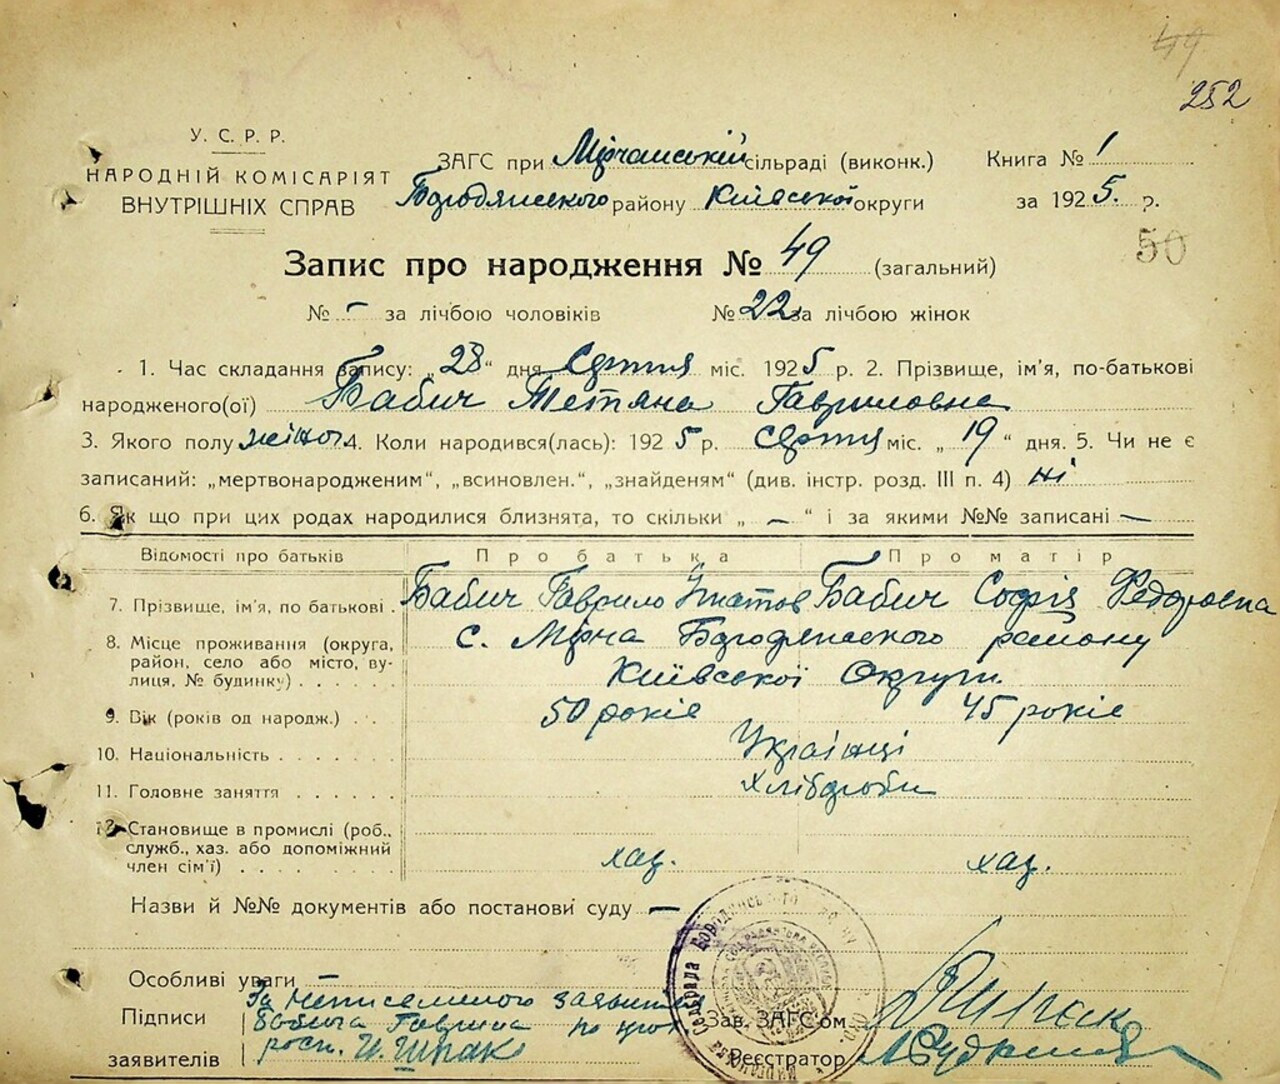 49
252
У. С. Р. Р.
НАРОДНІЙ КОМІСАРІЯТ
ВНУТРІШНІХ СПРАВ
ЗАГС при Мірчанській сільраді (виконк.)
Бородянського району Київської округи
Книга № 1
за 1925. р.
50
Запис про народження № 49 (загальний)
№ - за лічбою чоловіків № 22 за лічбою жінок
1. Час складання запису: „28" дня Серпня міс. 1925 р. 2. Прізвище, ім'я, по-батькові
народженого(ої) Бабич Тетяна Гавриловна
3. Якого полу жіноч. 4. Коли народився(лась): 1925 р. серпня міс. „19" дня. 5. Чи не є
записаний: „мертвонародженим", „всиновлен.", „знайденям" (див. інстр. розд. III п. 4) ні
6. Як що при цих родах народилися близнята, то скільки „ — " і за якими №№ записані —
Відомості про батьків Про батька Про матір
7. Прізвище, ім'я, по батькові . Бабич Гаврило Ігнатов Бабич Софія Федоровна
8. Місце проживання (округа,
район, село або місто, ву-
лиця, № будинку) . . . . . .
с. Мірча Бородянського району
Київської Округи.
9. Вік (років од народж.) . . 50 років 45 років
10. Національність . . . . . . . Українці
11. Головне заняття . . . . . . хлібороби
12. Становище в промислі (роб.,
служб., хаз. або допоміжний
член сім'ї) . . . . . . . .
хаз. хаз.
Назви й №№ документів або постанови суду —
Особливі уваги —
Підписи
заявителів
За неписьменого заявителя
Бабича Гаврила по його
росп. И. Шпак
Зав. ЗАГС'ом
Реєстратор